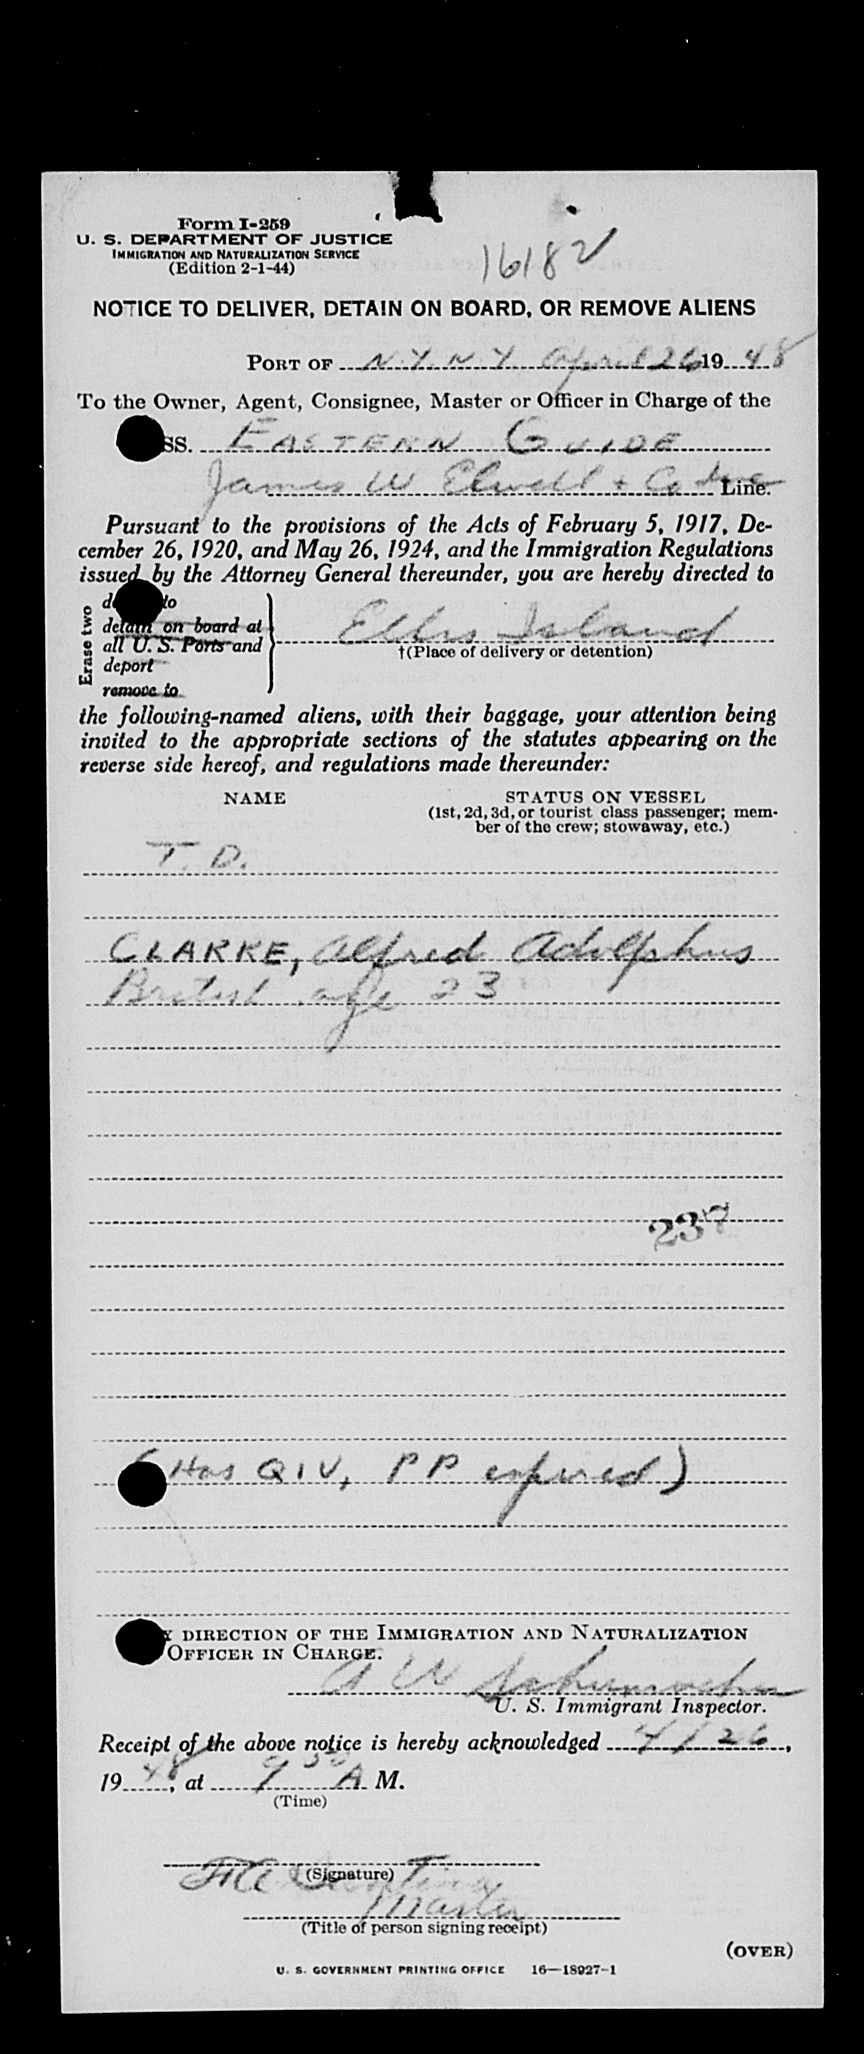 Form I-259
U. S. DEPARTMENT OF JUSTICE
IMMIGRATION AND NATURALIZATION SERVICE
(Edition 2-1-44)
16182
NOTICE TO DELIVER, DETAIN ON BOARD, OR REMOVE ALIENS
PORT OF N.Y. N.Y. April 26 1948
To the Owner, Agent, Consignee, Master or Officer in Charge of the
SS. EASTERN GUIDE
James W Elwell & Co Inc Line.
Pursuant to the provisions of the Acts of February 5, 1917, De-
cember 26, 1920, and May 26, 1924, and the Immigration Regulations
issued by the Attorney General thereunder, you are hereby directed to
Erase two
to
detain on board at
all U. S. Ports and
deport
remove to
Ellis Island
†(Place of delivery or detention)
the following-named aliens, with their baggage, your attention being
invited to the appropriate sections of the statutes appearing on the
reverse side hereof, and regulations made thereunder:
NAME STATUS ON VESSEL
(1st, 2d, 3d, or tourist class passenger; mem-
ber of the crew; stowaway, etc.)
T. D.
CLARKE, Alfred Adolphus
British age 23
237
(Has QIV, PP expired)
DIRECTION OF THE IMMIGRATION AND NATURALIZATION
OFFICER IN CHARGE.
A W Schumacher
U. S. Immigrant Inspector.
Receipt of the above notice is hereby acknowledged 4/26,
1948, at 9 30 A. M.
(Time)
(Signature)
Master
(Title of person signing receipt)
(OVER)
U. S. GOVERNMENT PRINTING OFFICE 16—18927-1